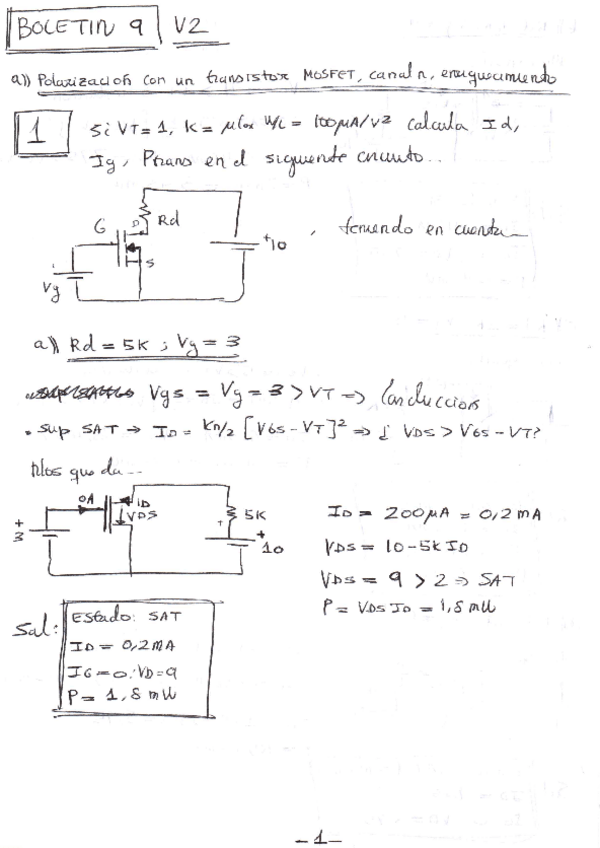 BOLETIN 9 V2
a)) Polarización con un transistor MOSFET, canal n, enriquecimiento
1 Si VT=1, K= μCox W/L = 100μA/V² calcula Id,
Ig, Ptrans en el siguiente circuito..
G D S Rd +10 Vg , teniendo en cuenta
a)) Rd = 5K ; Vg = 3
Vgs = Vg = 3 > VT => Conducción
• sup SAT → ID = Kn/2 [VGS - VT]² => ¿ VDS > VGS - VT?
Nos queda...
0A ID VDS 5K + 3 + 10
ID = 200μA = 0,2mA
VDS = 10-5K ID
VDS = 9 > 2 => SAT
P = VDS ID = 1,8 mW
Sol:
Estado: SAT
ID = 0,2mA
IG = 0 ; VD = 9
P = 1,8 mW
-1-